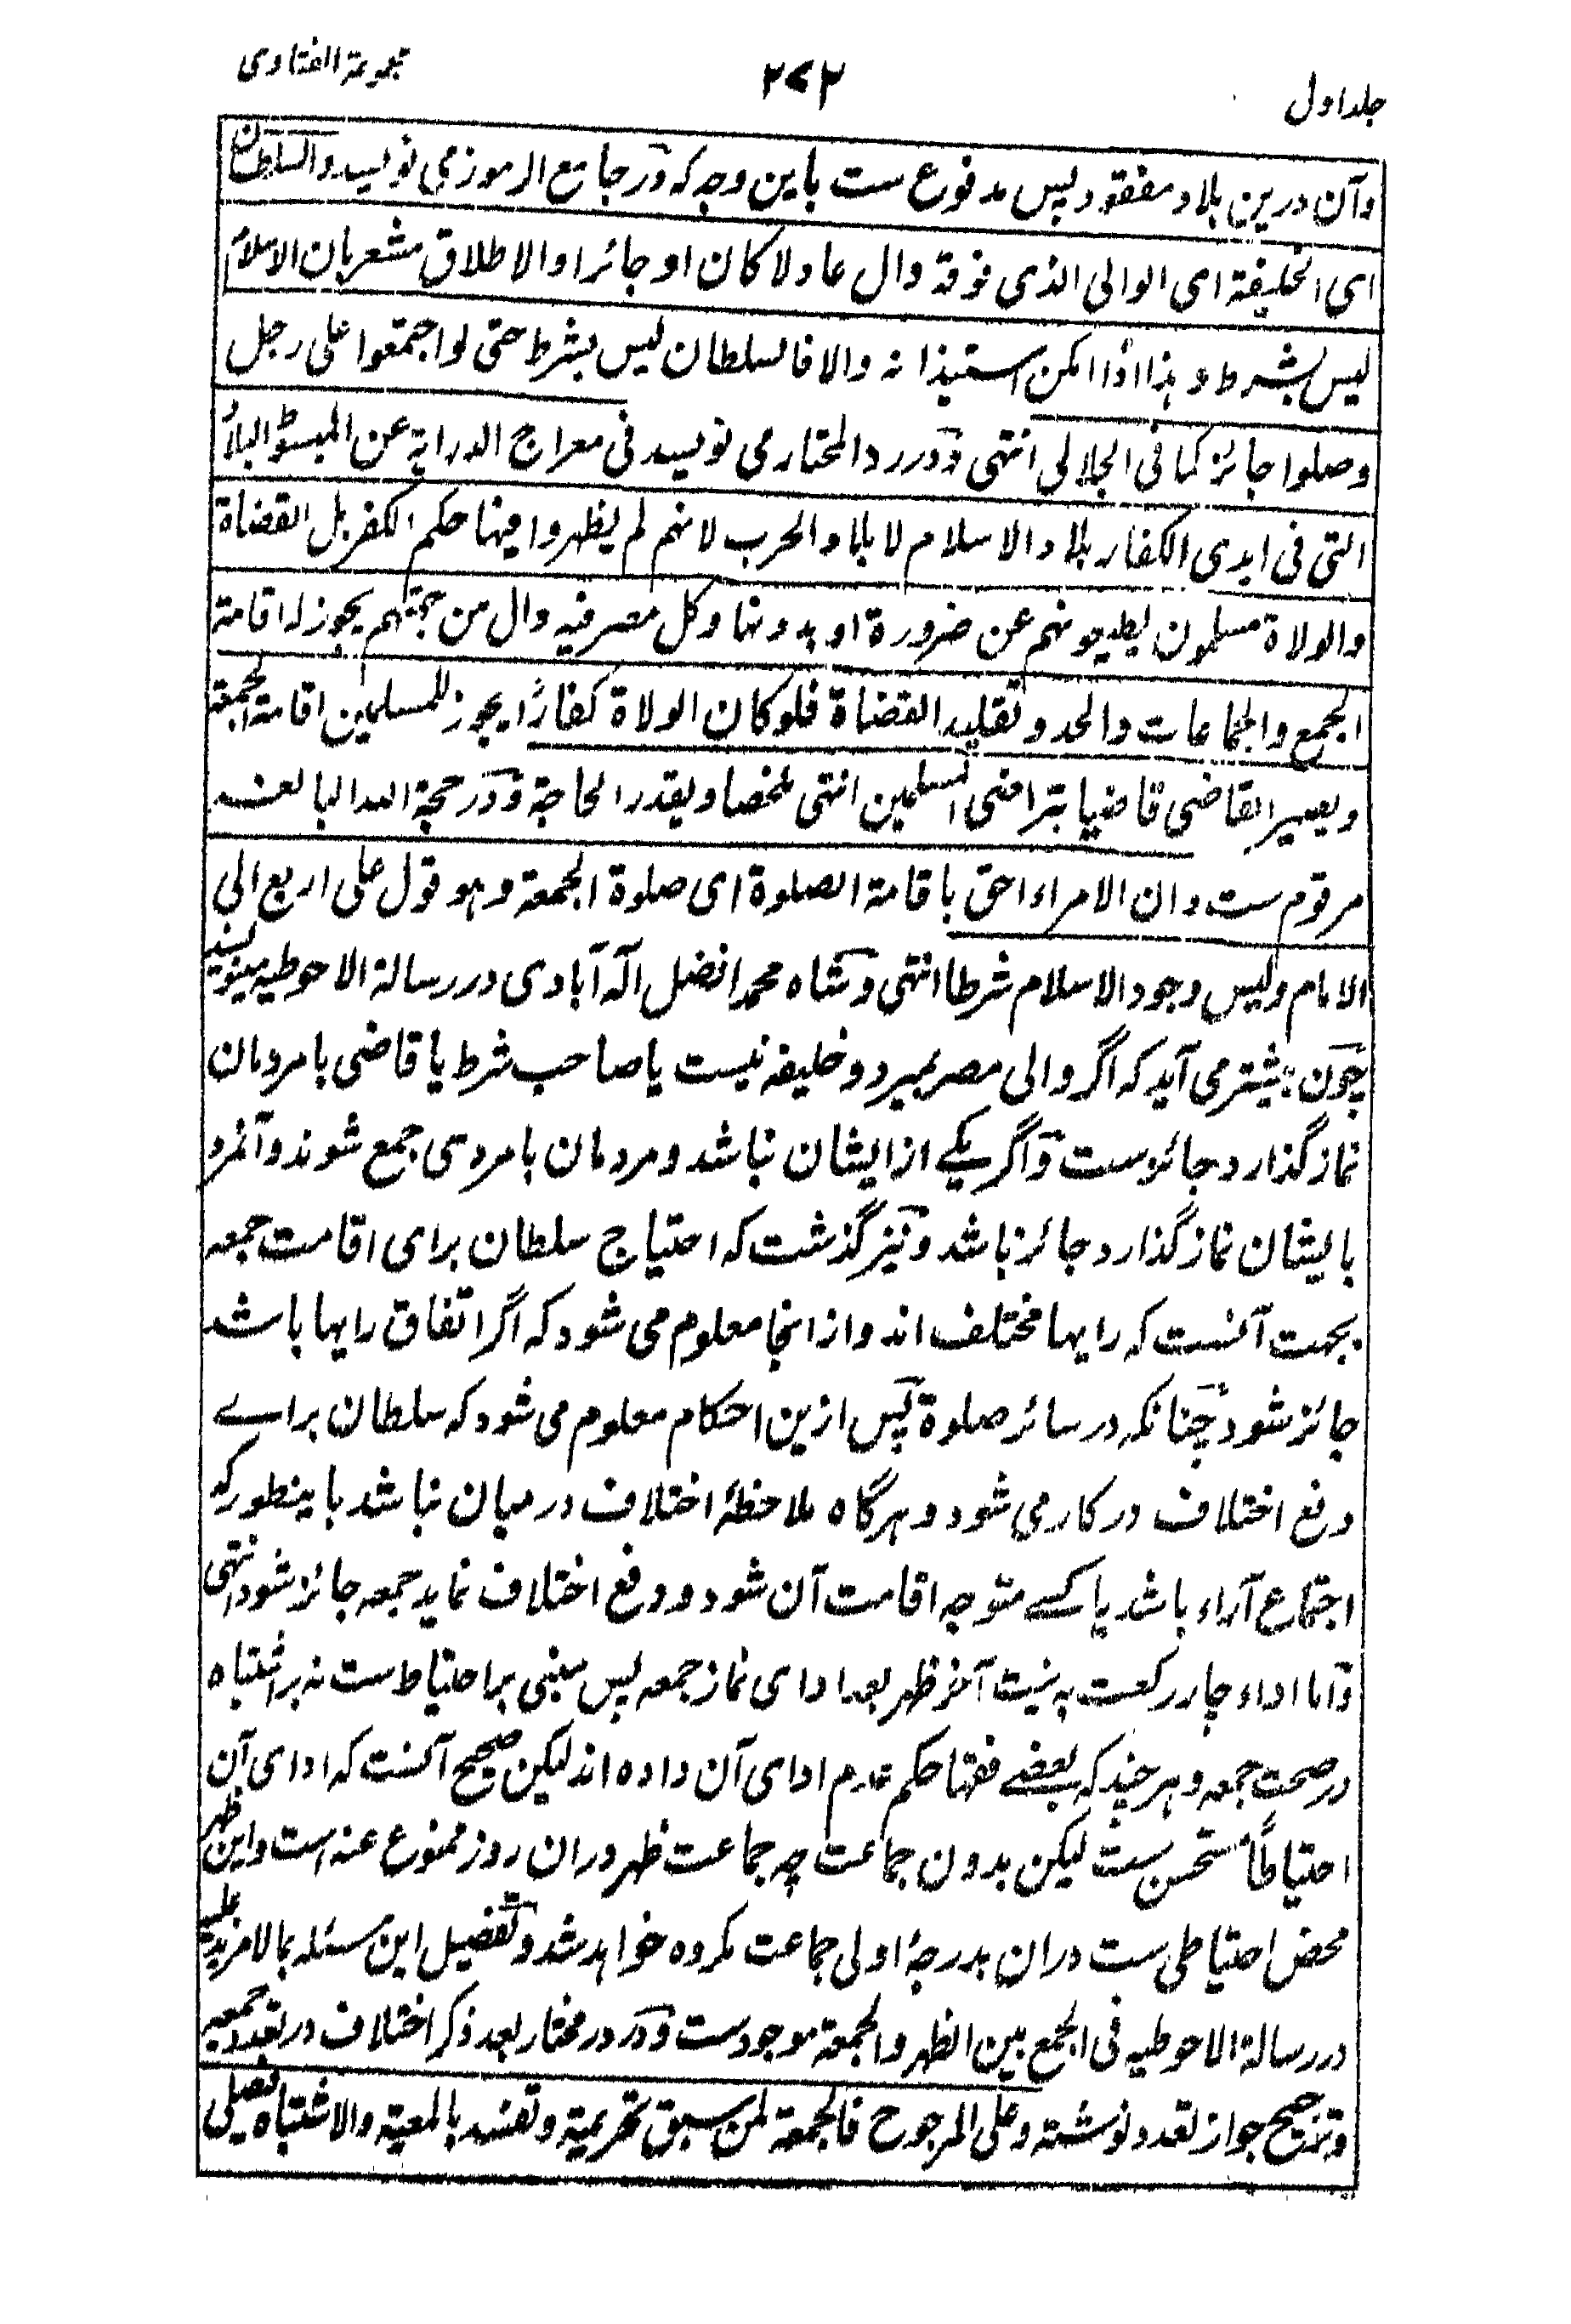 جلد اول
۲۷۲
مجموعة الفتاوى
وآن درین بلاد مفقود پس مدفوع ست باین وجه که در جامع الرموز می نویسد والسلطان
ای الخلیفة ای الوالی الذی فوقه وال عادلا کان او جائرا والاطلاق مشعر بان الاسلام
لیس بشرط وہذا اذا امکن استیذانه والا فالسلطان لیس بشرط حتی لو اجتمعوا علی رجل
وصلوا جائز کما فی الجلالی انتهی ودر رد المحتار می نویسد فی معراج الدرایة عن المبسوط البلاد
التی فی ایدی الکفار بلاد الاسلام لا بلاد الحرب لانهم لم یظهروا فیها حکم الکفر بل القضاة
والولاة مسلمون یطیعونهم عن ضرورة او بدونها وکل مصر فیه وال من جهتهم یجوز له اقامة
الجمع والجماعات والحد وتقلید القضاة فلو کان الولاة کفارًا یجوز للمسلمین اقامة الجمعة
ویصیر القاضی قاضیا بتراضی المسلمین انتهی ملخصا وبقدر الحاجة ودر حجة الله البالغه
مرقوم ست وان الامراء احق باقامة الصلوة ای صلوة الجمعة وہو قول علی اربع الی
الامام ولیس وجود الاسلام شرطا انتهی وشاه محمد افضل اله آبادی در رسالة الاحوطیه مینویسند
چون پیشتر می آید که اگر والی مصر بمیرد وخلیفه نیست یا صاحب شرط یا قاضی با مردمان
نماز گذارد جائزست واگر یکے از ایشان نباشد ومردمان با مردی جمع شوند وآنمرد
بایشان نماز گذارد جائز باشد ونیز گذشت که احتیاج سلطان برای اقامت جمعه
بجهت آنست که رایها مختلف اند واز انجا معلوم می شود که اگر اتفاق رایها باشد
جائز شود چنانکه در سائر صلوة پس ازین احکام معلوم می شود که سلطان براے
دفع اختلاف در کار می شود وہرگاه ملاحظۂ اختلاف درمیان نباشد باینطور که
اجتماع آراء باشد یا کسے متوجه اقامت آن شود ودفع اختلاف نماید جمعه جائز شود انتهی
واما اداء چار رکعت به نیت آخر ظهر بعد ادای نماز جمعه پس مبنی بر احتیاط ست نه بر اشتباه
در صحت جمعه وہر چند که بعضے فقها حکم عدم ادای آن داده اند لیکن صحیح آنست که ادای آن
احتیاطاً مستحسن ست لیکن بدون جماعت چه جماعت ظهر دران روز ممنوع عنه است واین ظهر
محض احتیاطی ست دران بدرجۂ اولی جماعت مکروه خواہد شد وتفصیل این مسئله بما لا مزید علیه
در رسالة الاحوطیه فی الجمع بین الظهر والجمعة موجودست ودر در مختار بعد ذکر اختلاف در تعدد جمعه
وترجیح جواز تعدد نوشته وعلی المرجوح فالجمعة لمن سبق تحریمة وتفسد بالمعیة والاشتباه فیصلی